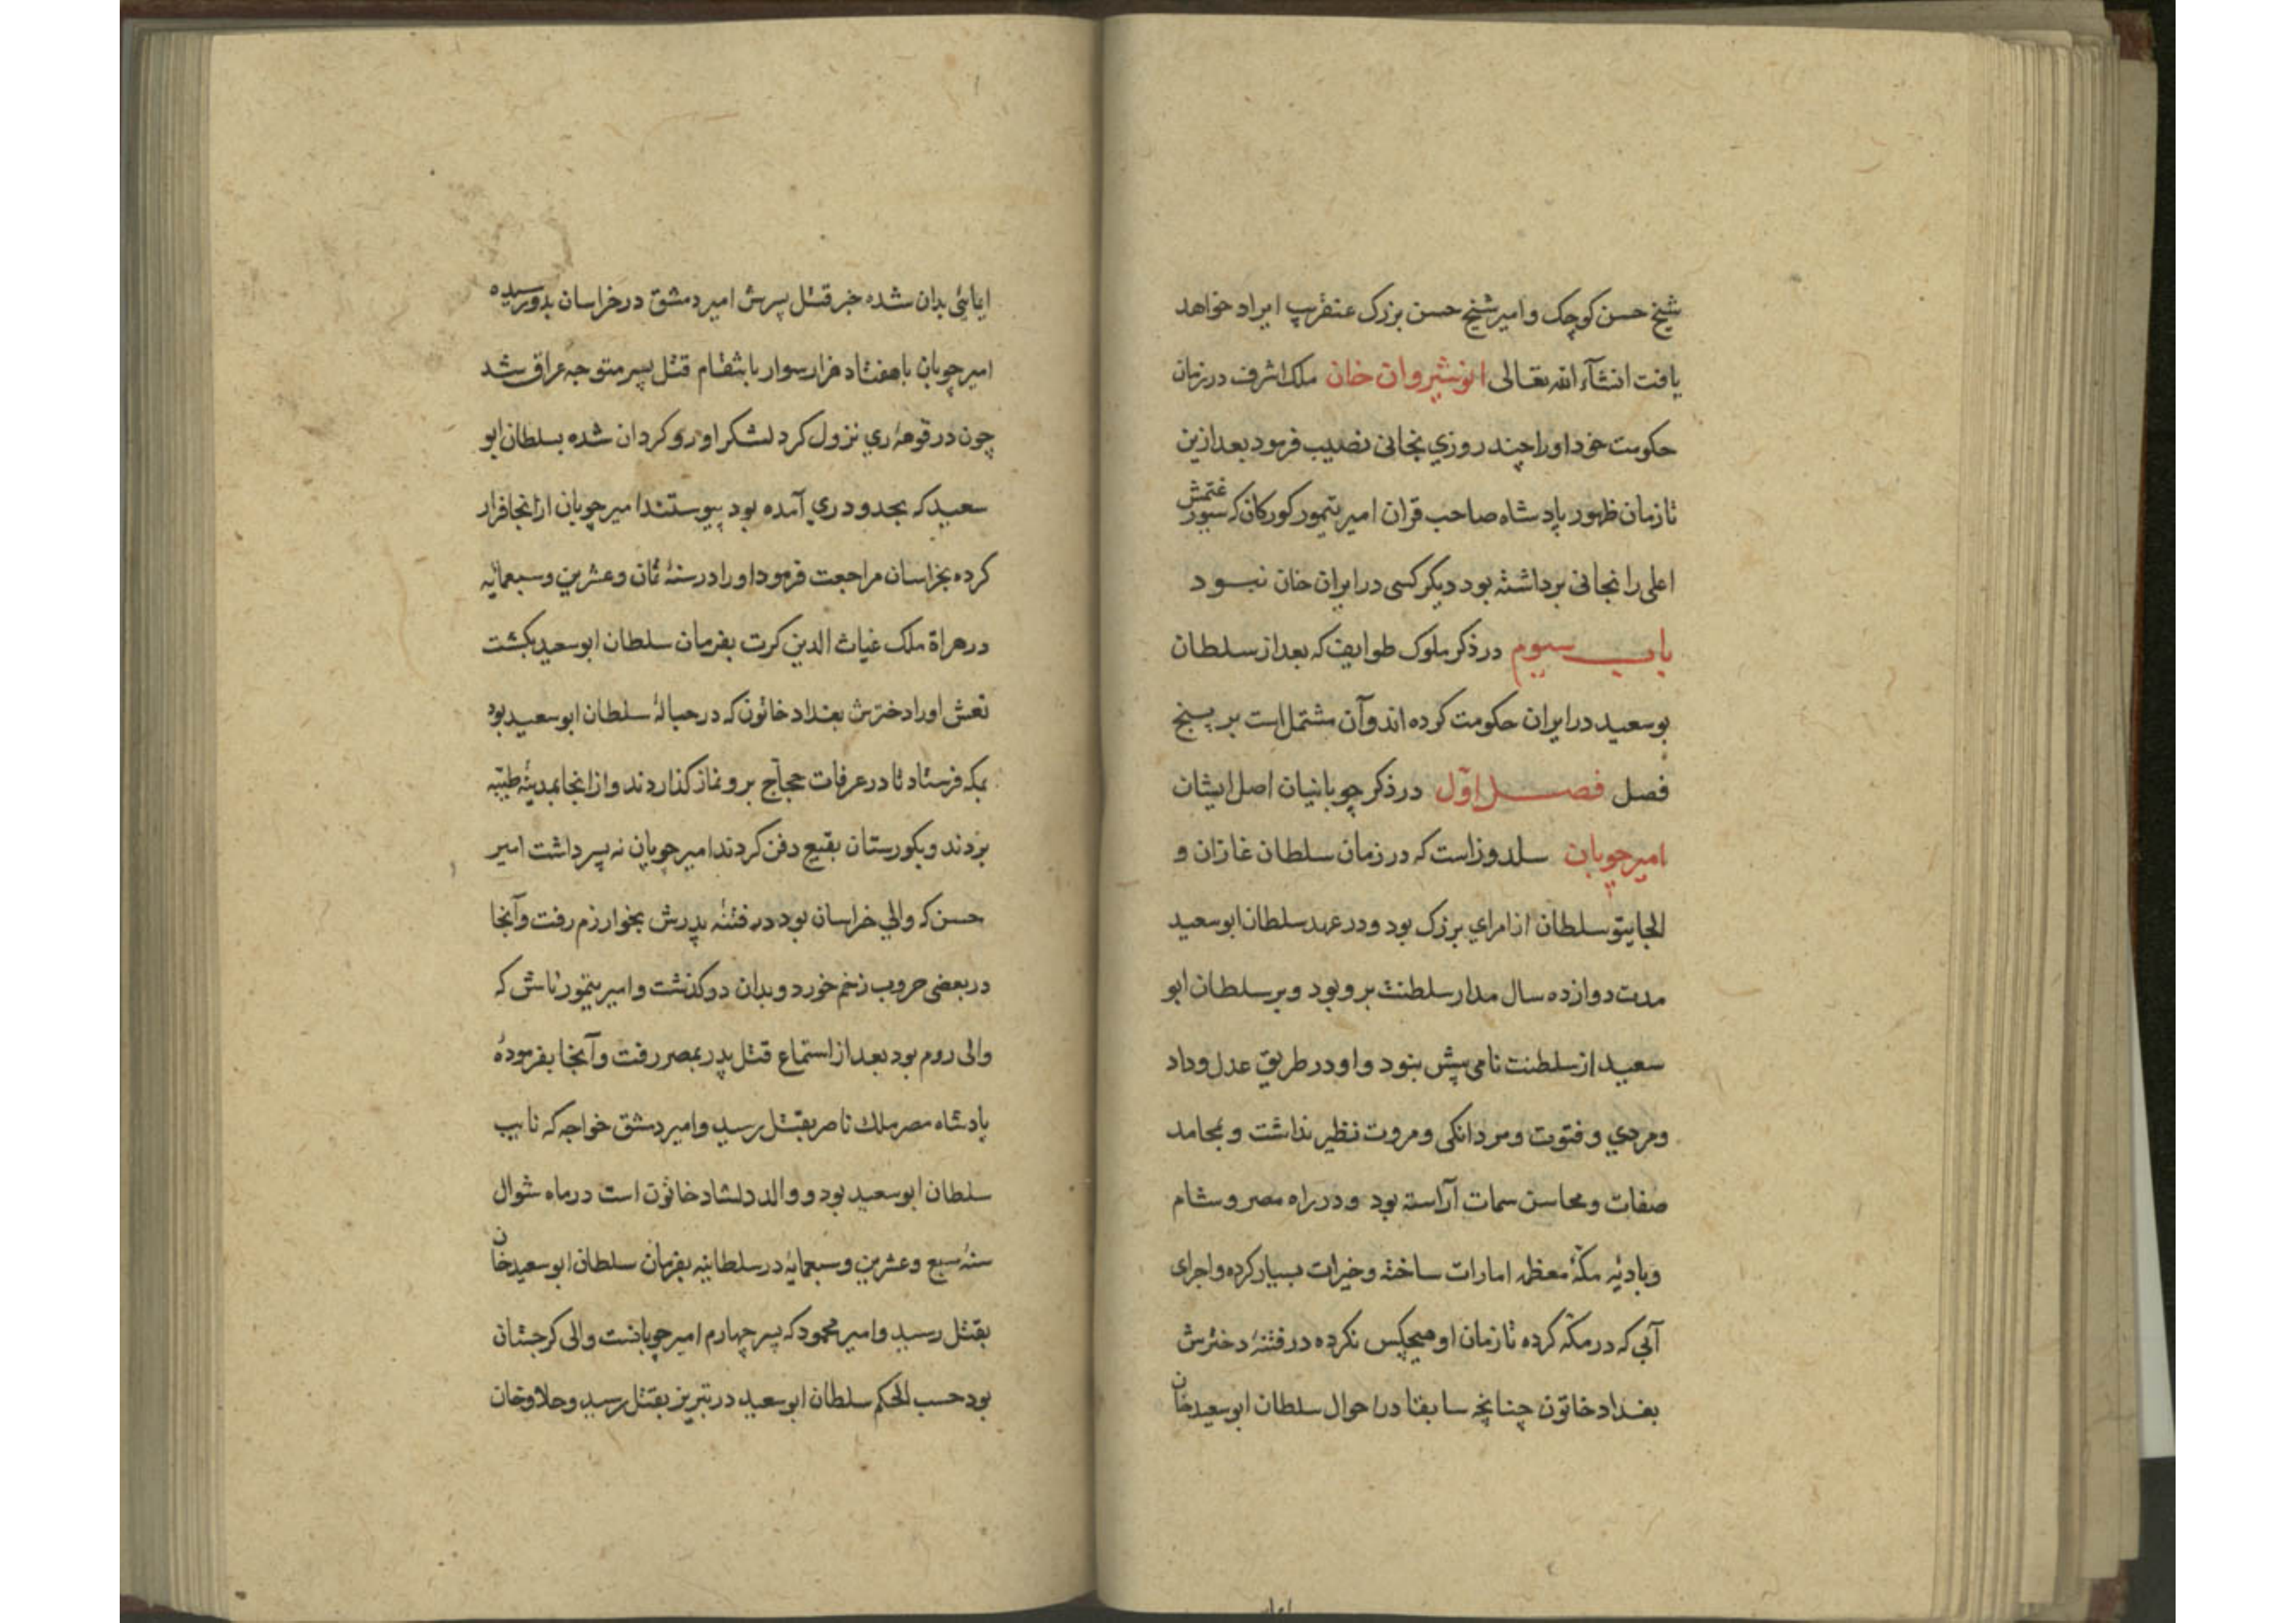 شیخ حسن کوچک و امیر شیخ حسن بزرک عنقریب ایراد خواهد
یافت انشآء الله تعالی انوشیروان خان ملک اشرف در زمان
حکومت خود او را چند روزی بخانی نصیب فرمود بعد ازین
تا زمان ظهور پادشاه صاحب قران امیر تیمور کورکان که سیورغتمش
اعلی را نجانی برداشته بود دیکر کسی در ایران خان نبود
باب سیوم در ذکر ملوک طوایف که بعد از سلطان
بوسعید در ایران حکومت کرده اند و آن مشتمل است بر پنج
فصل فصل اوّل در ذکر چوبانیان اصل ایشان
امیر چوبان سلدوز است که در زمان سلطان غازان و
الجایتو سلطان از امرای بزرک بود و در عهد سلطان ابو سعید
مدت دوازده سال مدار سلطنت برو بود و بر سلطان ابو
سعید از سلطنت نامی بیش بنود و او در طریق عدل و داد
و مردی و فتوت و مردانکی و مروت نظیر نداشت و بمحامد
صفات و محاسن سمات آراسته بود و در راه مصر و شام
و بادیهٔ مکّهٔ معظمه امارات ساخته و خیرات بسیار کرده و اجرای
آبی که در مکّه کرده تا زمان او هیچکس نکرده در فتنهٔ دخترش
بغداد خاتون چنانچه سابقا در احوال سلطان ابو سعید خان
ایمائی بدان شده خبر قتل پسرش امیر دمشق در خراسان بدو رسیده
امیر چوبان با هفتاد هزار سوار بانتقام قتل پسر متوجه عراق شد
چون در قوههٔ ری نزول کرد لشکر او رو کردان شده بسلطان ابو
سعید که بحدود ری آمده بود پیوستند امیر چوبان از انجا فرار
کرده بخراسان مراجعت فرمود او را در سنهٔ ثمان و عشرین و سبعمائه
در هراة ملک غیاث الدین کرت بفرمان سلطان ابو سعید بکشت
نعش او را دخترش بغداد خاتون که در حبالهٔ سلطان ابو سعید بود
بمکه فرستاد تا در عرفات حجاج برو نماز کذاردند و از انجا بمدینهٔ طیّبه
بردند و بکورستان بقیع دفن کردند امیر چوبان نه پسر داشت امیر
حسن که والی خراسان بود در فتنهٔ پدرش بخوارزم رفت و آنجا
در بعضی حروب زخم خورد و بدان درکذشت و امیر تیمور تاش که
والی روم بود بعد از استماع قتل پدر بمصر رفت و آنجا بفرمودهٔ
پادشاه مصر ملک ناصر بقتل رسید و امیر دمشق خواجه که نایب
سلطان ابو سعید بود و والد دلشاد خاتون است در ماه شوال
سنهٔ سبع و عشرین و سبعمایه در سلطانیه بفرمان سلطان ابو سعید خان
بقتل رسید و امیر محمود که پسر چهارم امیر چوبانست والی کرجستان
بود حسب الحکم سلطان ابو سعید در تبریز بقتل رسید و جلاوخان